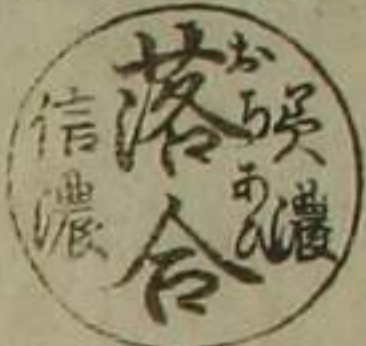 美濃
おちあひ
落合
信濃